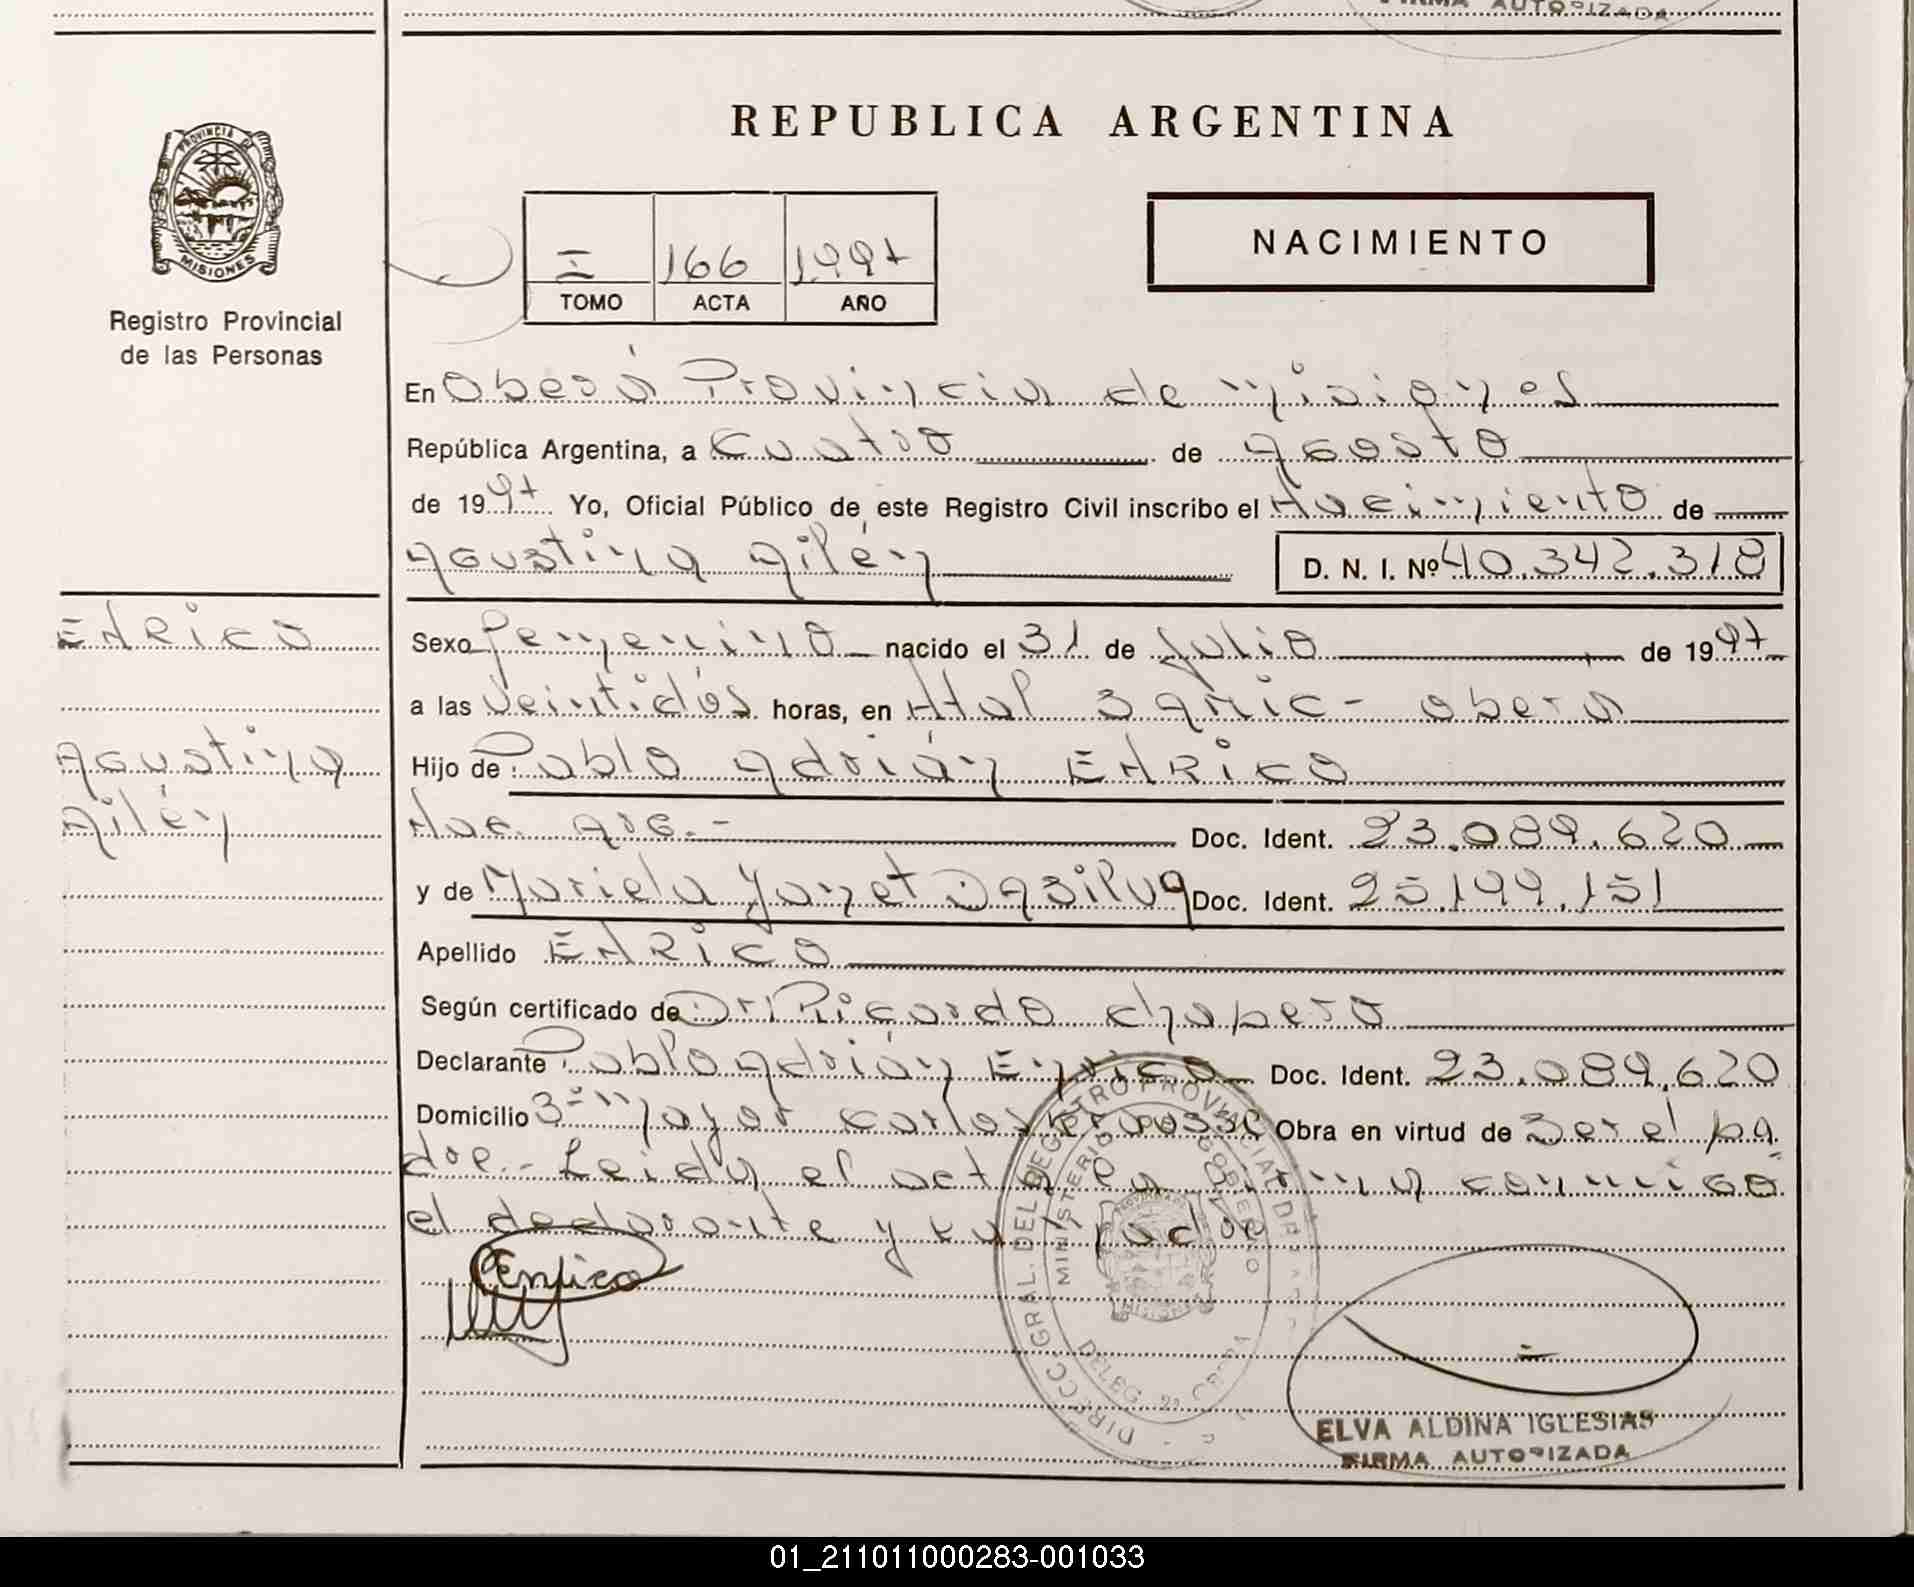 FIRMA AUTORIZADA
REPUBLICA ARGENTINA
PROVINCIA DE
MISIONES
Registro Provincial
de las Personas
I 166 1997
TOMO ACTA AÑO
NACIMIENTO
En Oberá Provincia de misiones
República Argentina, a cuatro de agosto
de 1997 Yo, Oficial Público de este Registro Civil inscribo el Nacimiento de
Agustina Ailén D. N. I. Nº 40.342.318
ENRico
Sexo femenino nacido el 31 de Julio de 1997
a las veintidós horas, en Htal Samic - Oberá
Agustina
Hijo de Pablo Adrián ENRico
Ailén
Nac. Arg.- Doc. Ident. 23.089.620
y de Mariela Yanet Da Silva Doc. Ident. 25.199.151
Apellido ENRico
Según certificado de Dr. Ricardo
Declarante Pablo Adrián Enrico Doc. Ident. 23.089.620
Domicilio mayor carlos Obra en virtud de Ser el pa
dre.- Leida el acta la firma conmigo
el declarante y su padre
Enrico
DIRECC. GRAL. DEL REGISTRO PROVINCIAL DE
MINISTERIO GOBIERNO
MISIONES
DELEG. OBERA
ELVA ALDINA IGLESIAS
FIRMA AUTORIZADA
01_211011000283-001033